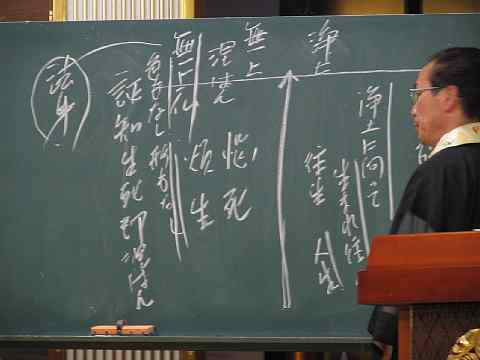 浄土
浄土に向って
生まれ往
往生
人生
無上
涅槃
煩悩
生死
無上仏
色もなし形もなし
証知生死即涅槃
法身